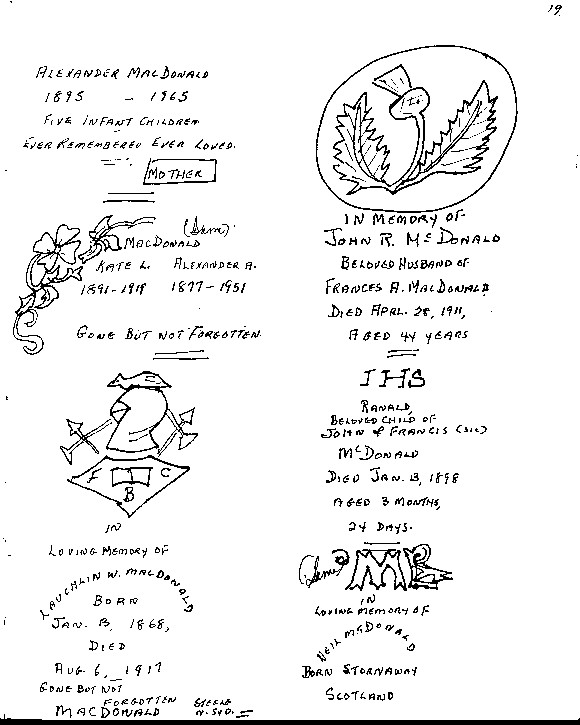 19
ALEXANDER MACDONALD
1895 – 1965
FIVE INFANT CHILDREN
EVER REMEMBERED EVER LOVED.
MOTHER
(Same)
MACDONALD
KATE L. ALEXANDER A.
1891-1919 1877-1951
GONE BUT NOT FORGOTTEN
F C
B
IN
LOVING MEMORY OF
LAUCHLIN W. MACDONALD
BORN
JAN. 13, 1868,
DIED
AUG 6, 1917
GONE BUT NOT
FORGOTTEN
MACDONALD
IN MEMORY OF
JOHN R. McDONALD
BELOVED HUSBAND OF
FRANCES A. MACDONALD
DIED APRL. 28, 1911,
AGED 44 YEARS
IHS
RANALD,
BELOVED CHILD OF
JOHN & FRANCIS (SIC)
McDONALD
DIED JAN. 13, 1898
AGED 3 MONTHS,
24 DAYS.
(Same) M
IN
LOVING MEMORY OF
NEIL McDONALD
BORN STORNAWAY
SCOTLAND